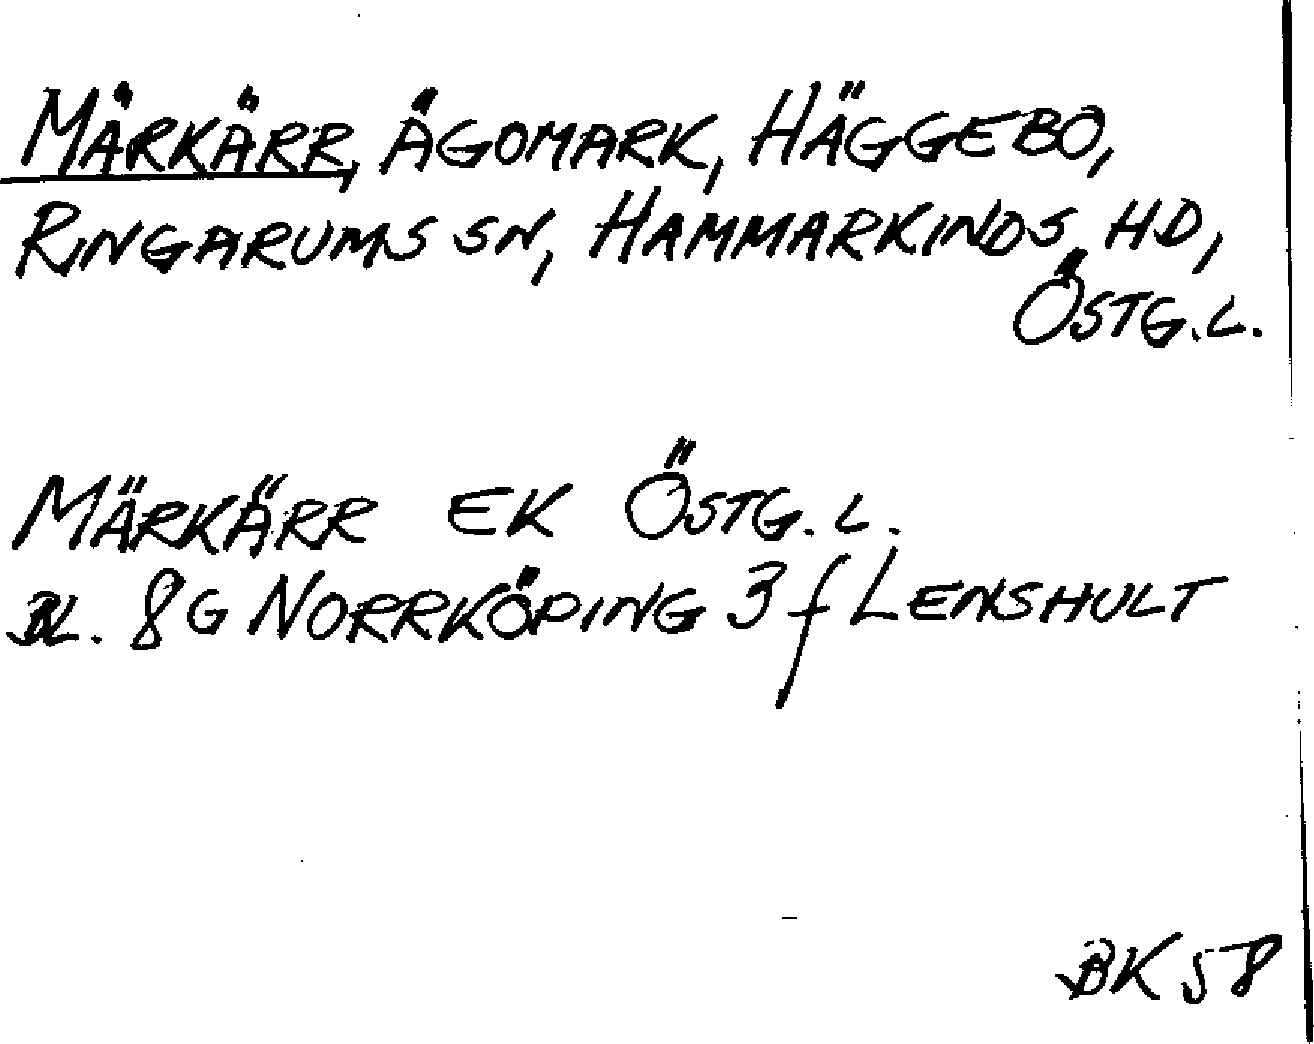 MÄRKÄRR, ÄGOMARK, HÄGGEBO,
RINGARUMS SN, HAMMARKINDS HD,
ÖSTG.L.
MÄRKÄRR EK ÖSTG.L.
BL. 8G NORRKÖPING 3f LENSHULT
BK 58